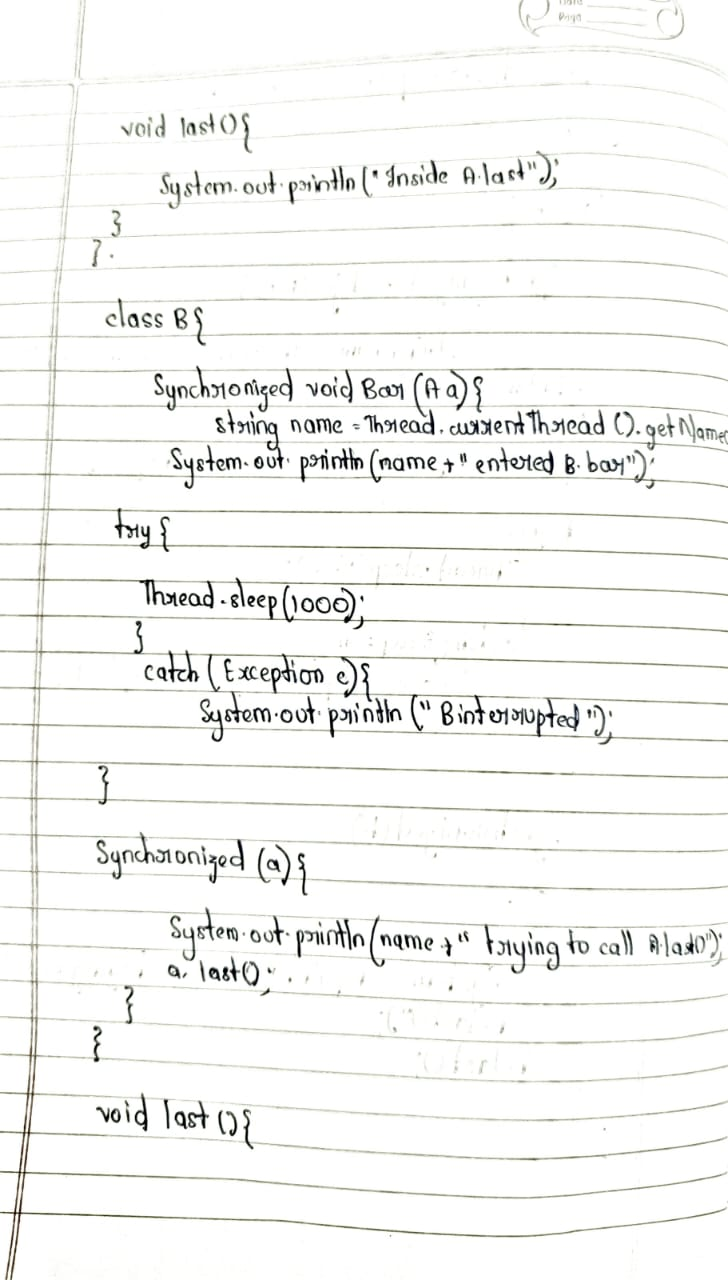 Page
void last(){
System.out.println("Inside A.last");
}
}.
class B{
Synchronized void Bar (A a){
string name = Thread.currentThread().getName(
System.out.println(name + " entered B.bar");
try {
Thread.sleep(1000);
}
catch (Exception e){
System.out.println (" B interrupted ");
}
Synchronized (a){
System.out.println(name + " trying to call A.last()");
a. last();
}
}
void last (){